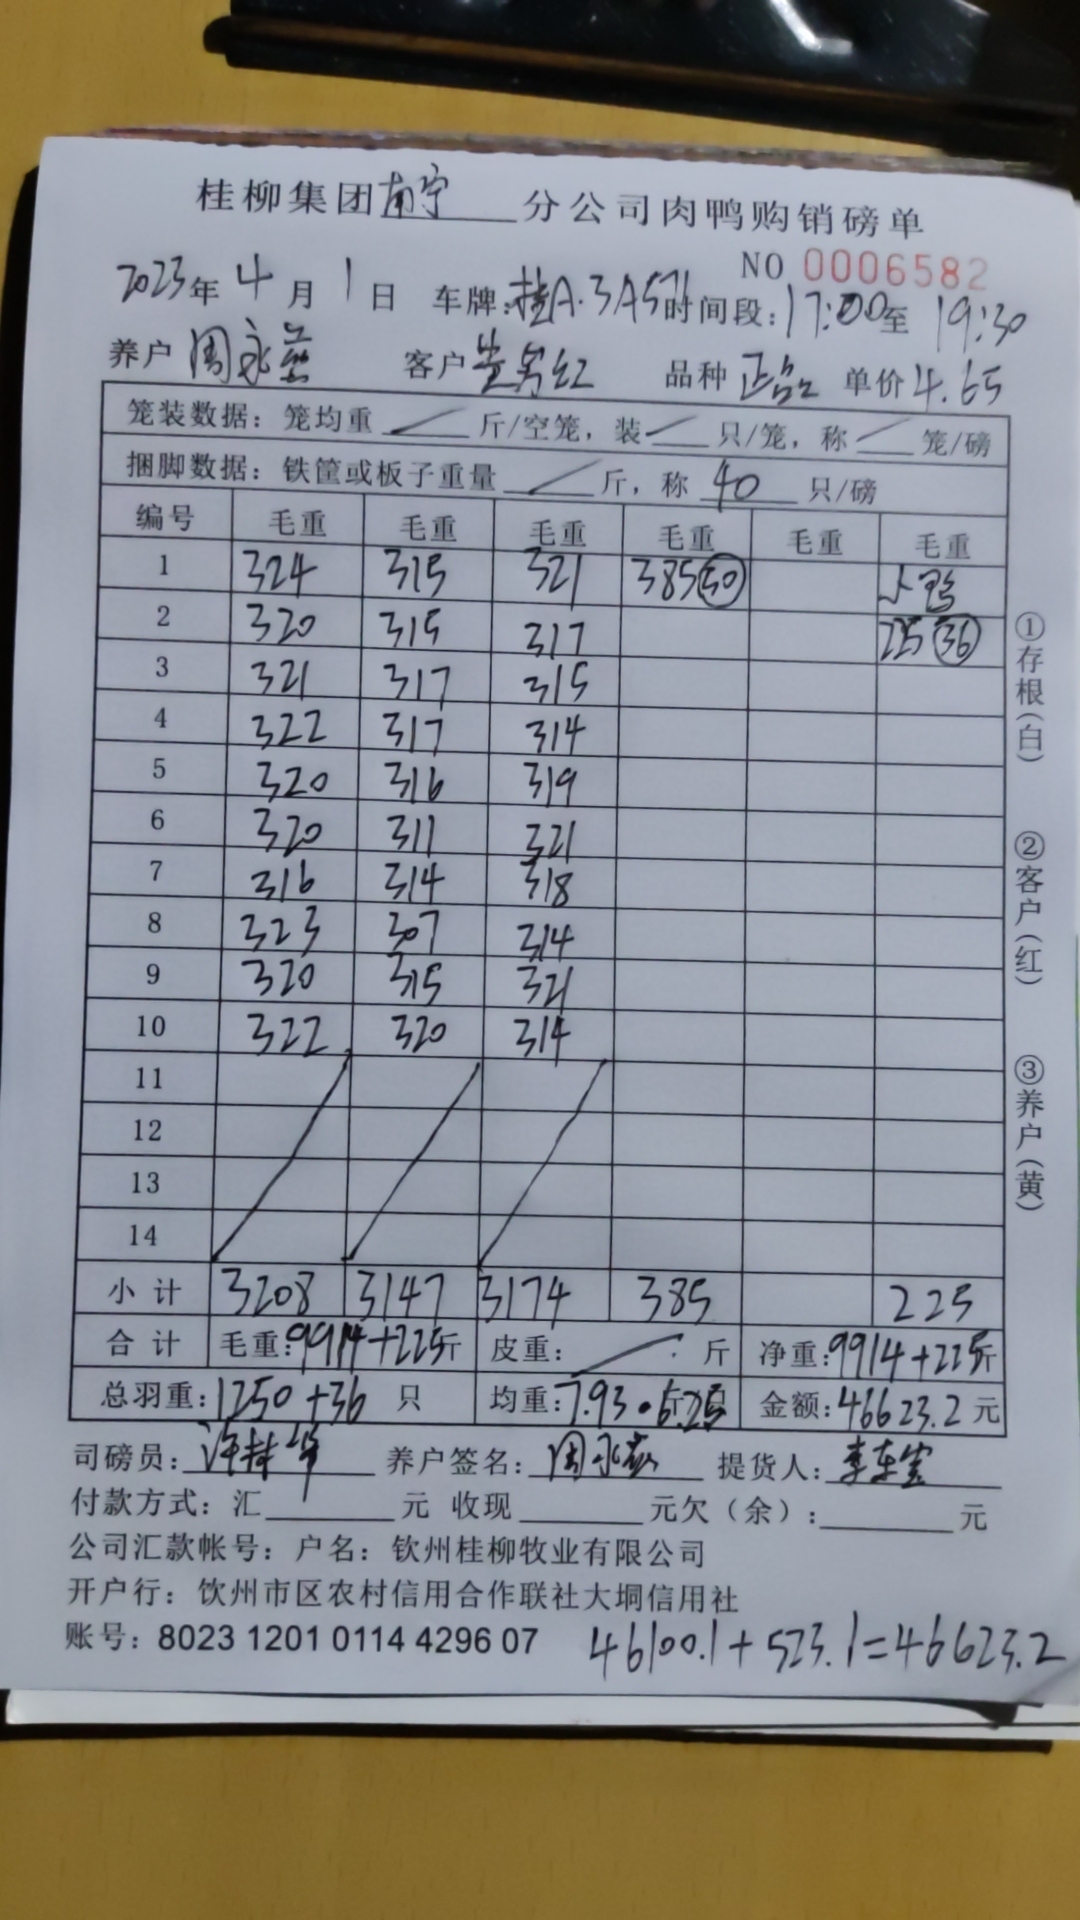 桂柳集团南宁分公司肉鸭购销磅单
NO 0006582
2023年4月1日 车牌:桂A·3A571 时间段:17:00至19:30
养户 周永燕 客户 黄寿红 品种 正品 单价 4.65
笼装数据：笼均重 / 斤/空笼，装 / 只/笼，称 / 笼/磅
捆脚数据：铁筐或板子重量 / 斤，称 40 只/磅
编号 毛重 毛重 毛重 毛重 毛重 毛重
1 324 315 321 385(50) 小鸭
2 320 315 317 225(36)
3 321 317 315
4 322 317 314
5 320 316 319
6 320 311 321
7 316 314 318
8 323 307 314
9 320 315 321
10 322 320 314
11
12
13
14
小计 3208 3147 3174 385 225
合计 毛重:9914+225斤 皮重: / 斤 净重:9914+225斤
总羽重:1250+36 只 均重:7.93·6.25 金额:46623.2元
司磅员: 养户签名:周永燕 提货人:李东宝
付款方式：汇 元 收现 元欠（余）: 元
公司汇款帐号：户名：钦州桂柳牧业有限公司
开户行：钦州市区农村信用合作联社大垌信用社
账号：8023 1201 0114 4296 07
46100.1+523.1=46623.2
①存根(白)
②客户(红)
③养户(黄)